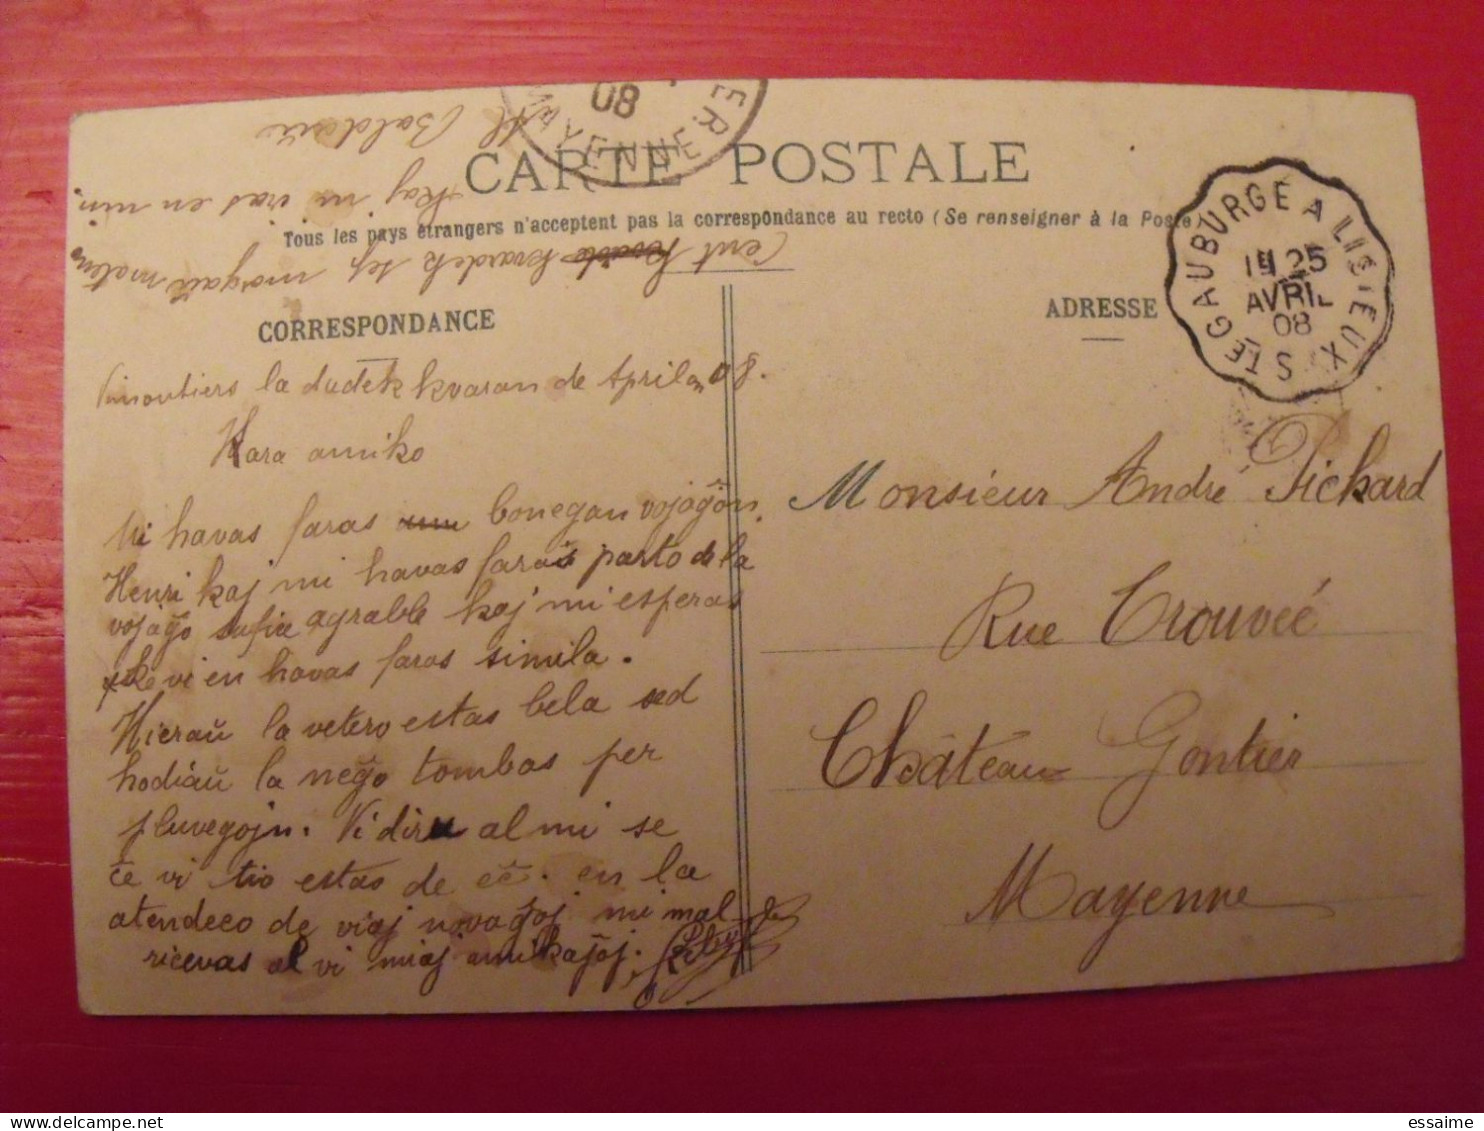 CARTE POSTALE
Tous les pays étrangers n'acceptent pas la correspondance au recto (Se renseigner à la Poste)
CORRESPONDANCE
ADRESSE
MAYENNE
08
STE GAUBURGE A LISIEUX
1E 25
AVRIL
08
Cent kvardek sep morgaŭ mateno
Kaj ni iras en
Al
la dudek kvaran de April 08.
Kara amiko
Mi havas faras bonegan vojaĝon.
Henri kaj mi havas faras parto de la
vojaĝo sufiĉe agrable kaj mi esperas
ke vi en havas faras simila.
Hieraŭ la vetero estas bela sed
hodiaŭ la neĝo tombas per
pluvegojn. Vi diru al mi se
ĉe vi tio estas de eĉ. en la
atendeco de viaj novaĝoj mi mal
ricevas al vi miaj amikaĵoj.
Monsieur André Pichard
Rue Trouvée
Château Gontier
Mayenne
essaime